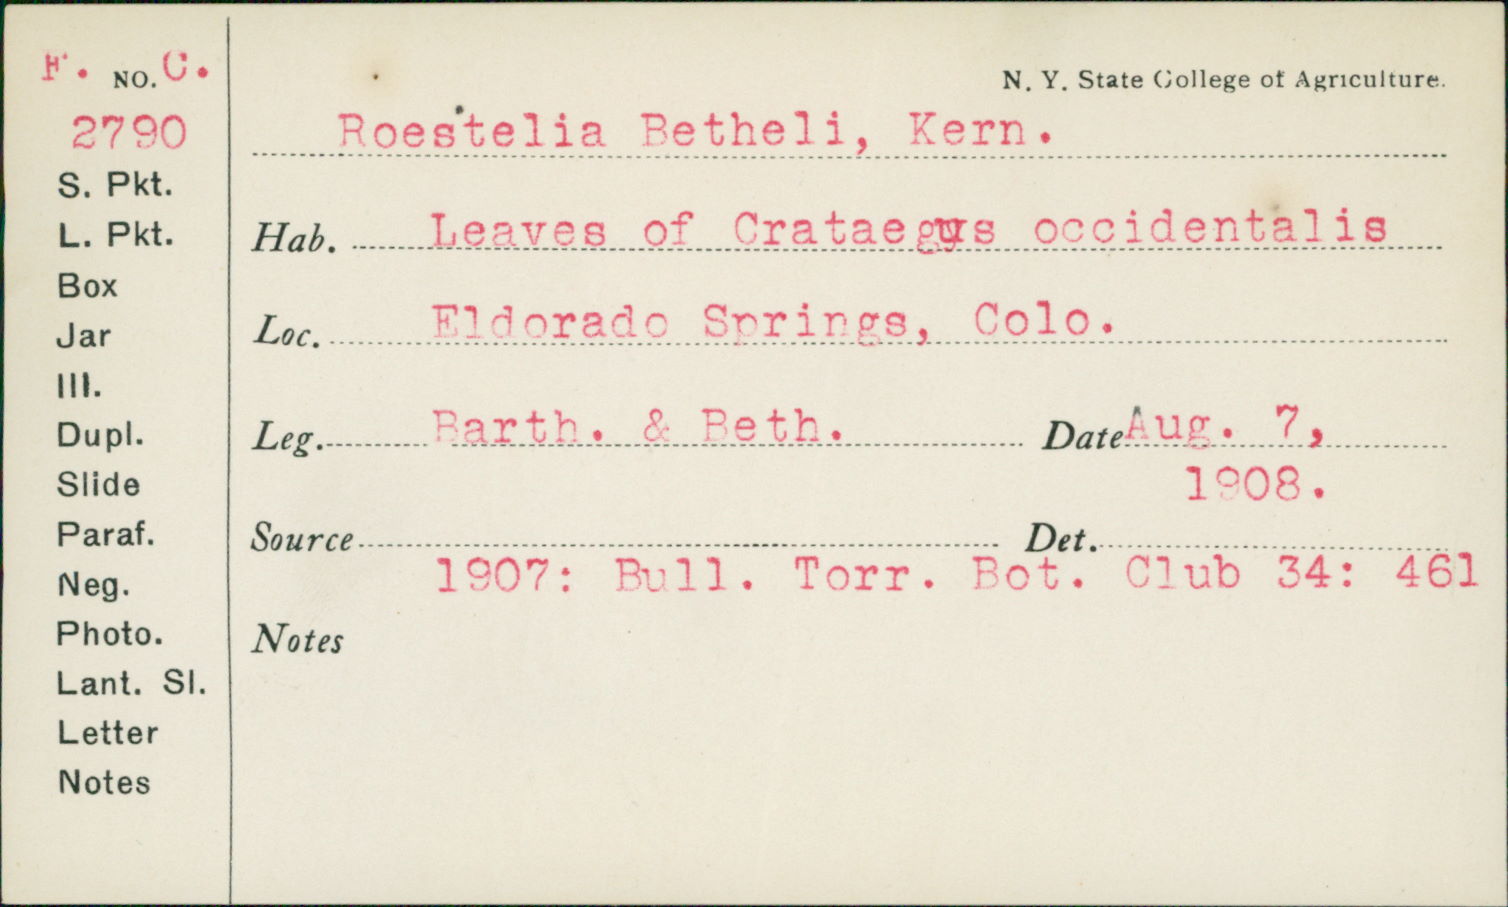 F. NO. C.
2790
S. Pkt.
L. Pkt.
Box
Jar
Ill.
Dupl.
Slide
Paraf.
Neg.
Photo.
Lant. Sl.
Letter
Notes
N. Y. State College of Agriculture.
Roestelia Betheli, Kern.
Hab. Leaves of Crataegus occidentalis
Loc. Eldorado Springs, Colo.
Leg. Barth. & Beth. Date Aug. 7,
1908.
Source Det.
1907: Bull. Torr. Bot. Club 34: 461
Notes